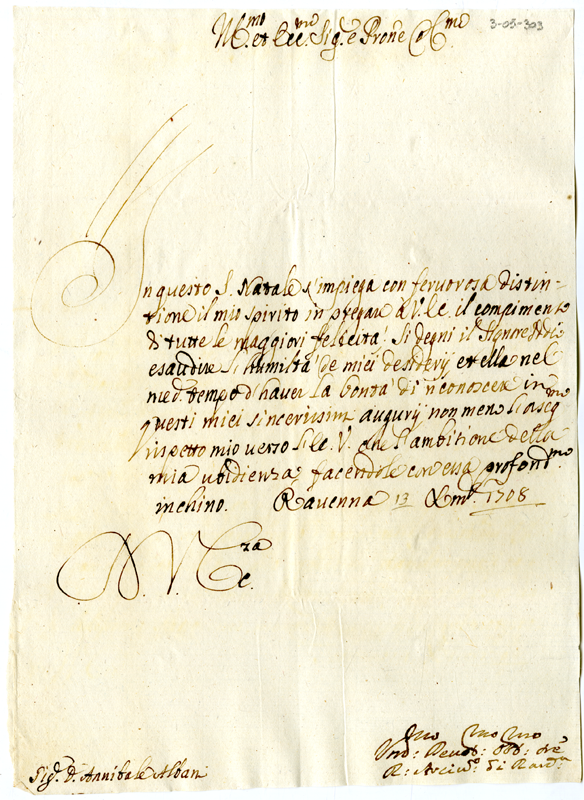 Ill.mo et Ecc.mo Sig.e Prone Col.mo
3-05-303
In questo S. Natale s'impiega con feruorosa distin-
tione il mio spirito in pregare à V. Ec. il compimento
di tutte le maggiori felicità! Si degni il Signore Iddio
esaudire l'humiltà de miei desiderij et ella nel
med.o tempo d'hauer la bontà di riconoscere in
questi miei sincerissimi augurij non meno l'osseq.mo
rispetto mio verso di Ec. V. che l'ambitione della
mia ubidienza, facendole con essa profond.mo
inchino. Ravenna 13 Xmb.e 1708
D. V. Ecc.za
Sig.r D. Annibale Albani
Um.o Deuot.mo Obb.mo
R: Arciu.o di Rau.a